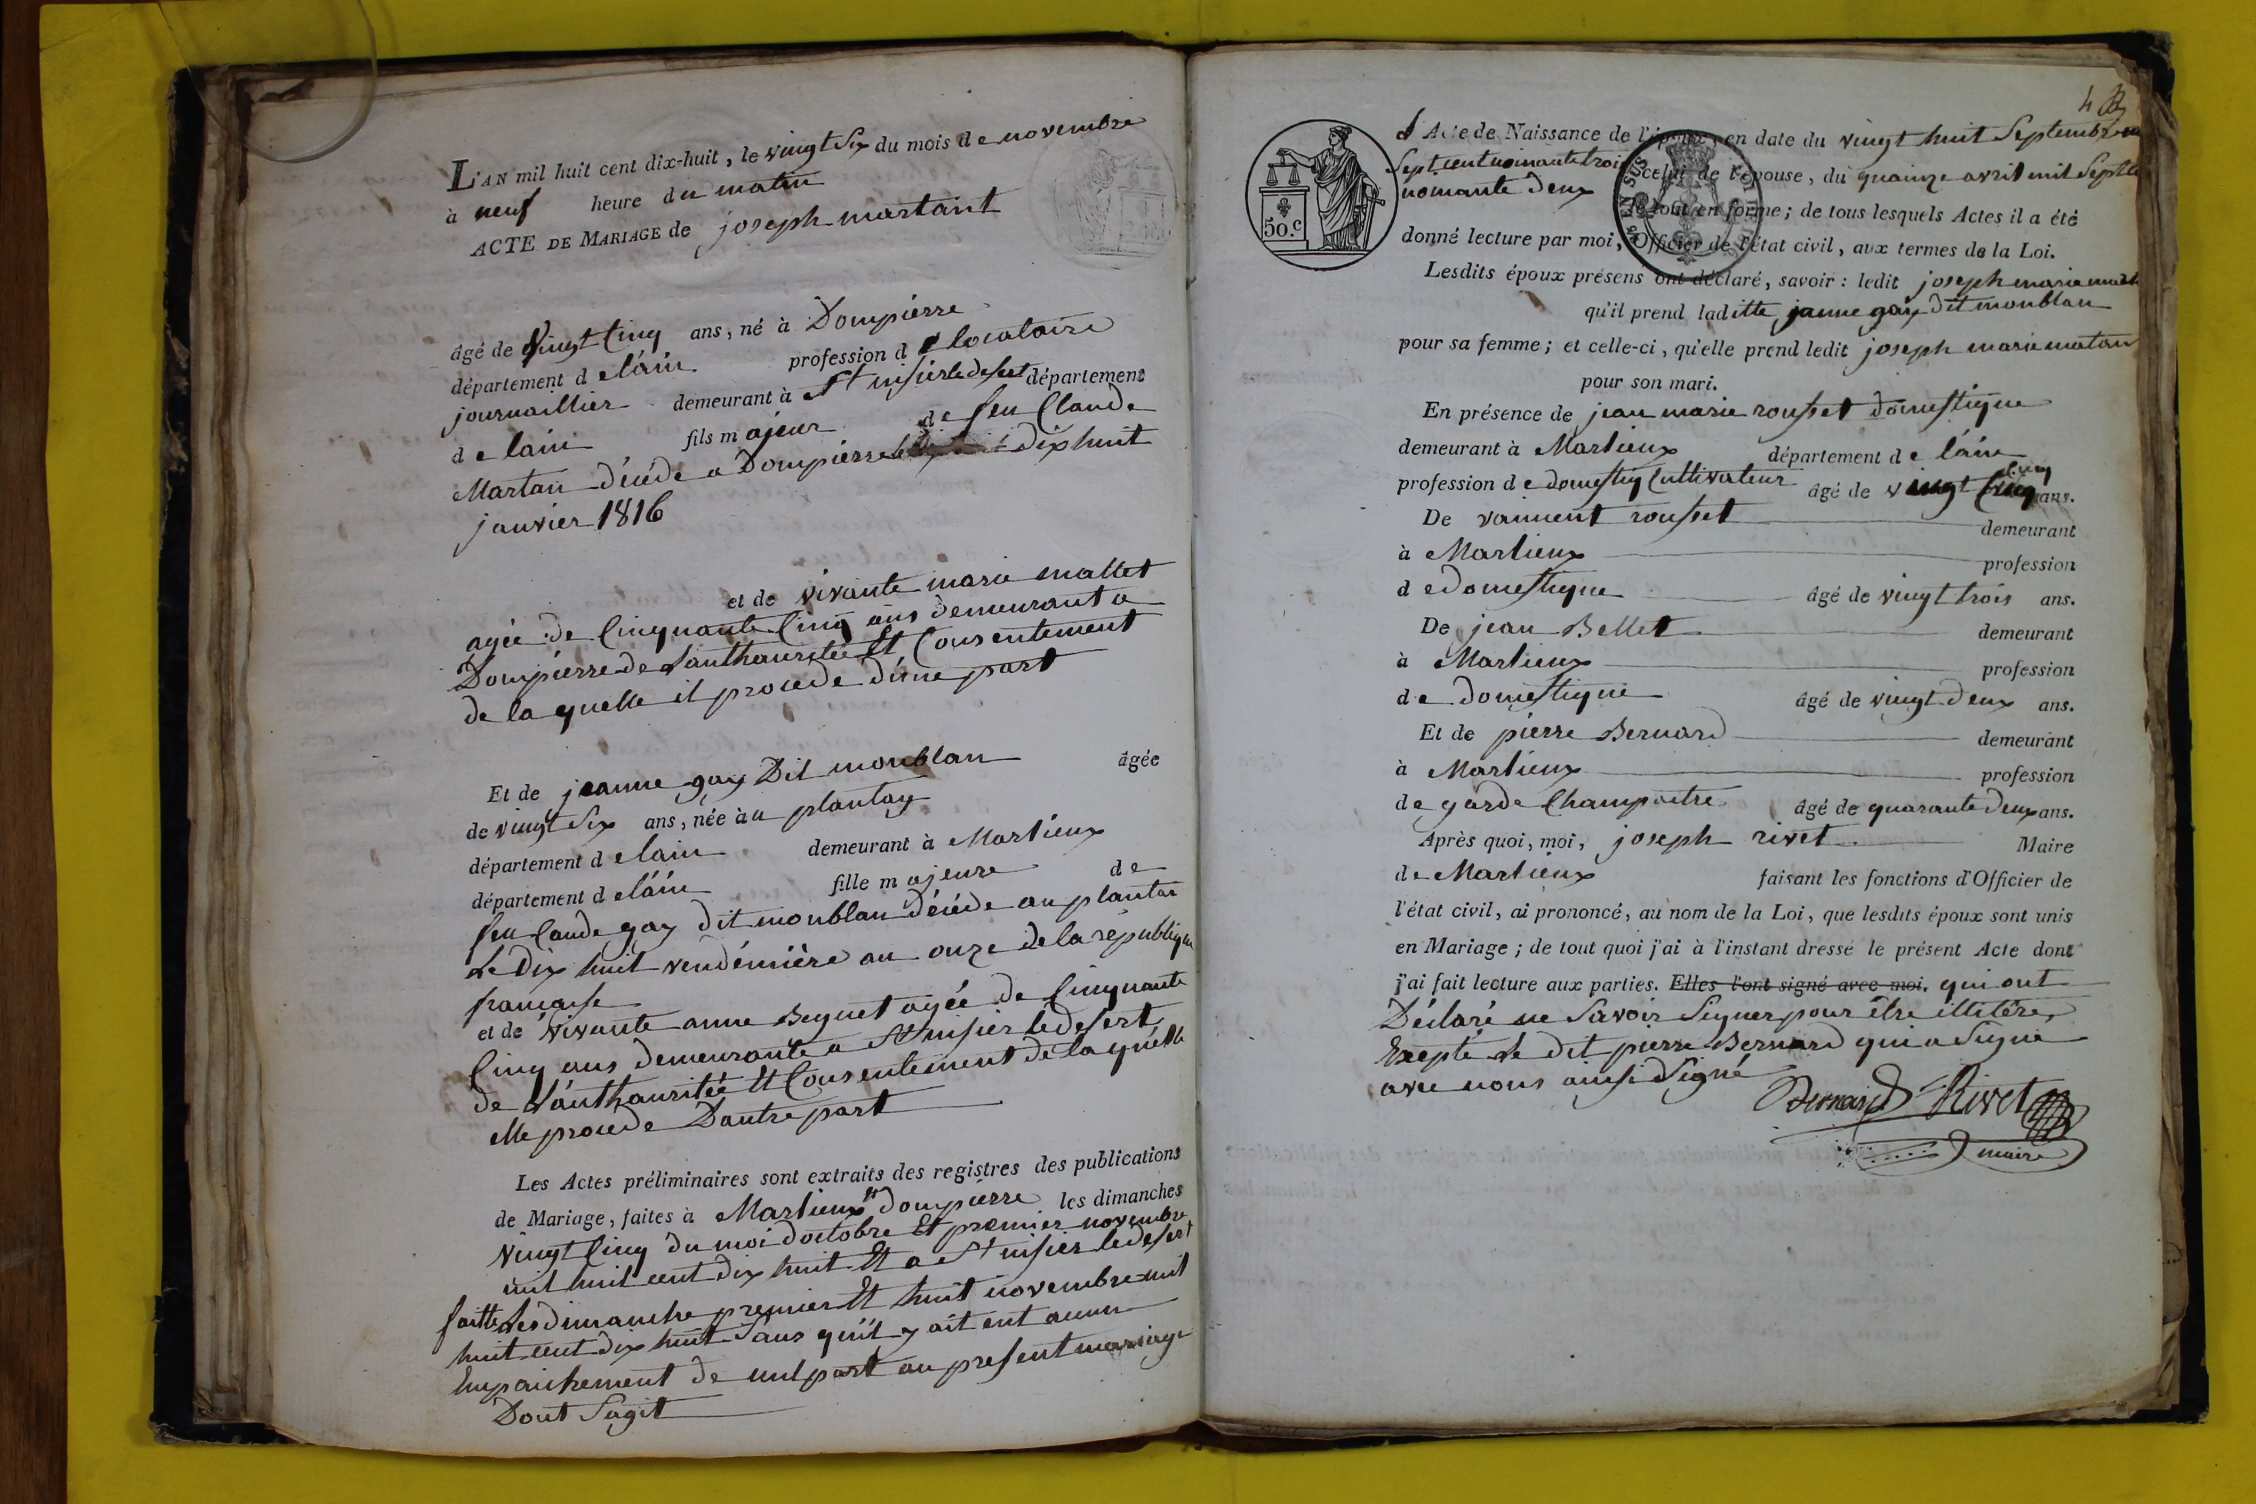 L'AN mil huit cent dix-huit, le vingt Six du mois de novembre
à neuf heure du matin
ACTE DE MARIAGE de joseph martant
âgé de vingt Cinq ans, né à Dompierre
département d eláin. profession d e locataire
journaillier demeurant à St nisier le desert département
d e lain fils m ajeur de feu Claude
Martan décédé a Dompierre le dix huit
janvier 1816
et de vivante marie mallet
agée de Cinquante Cinq ans demeurant a
Dompierre de Lauthauritée Et Consentement
de la quelle il procede d'une part
Et de jeanne gay Dit monblan âgée
de vingt Six ans, née à u plantay
département d elain demeurant à Marlieux
département d eláin fille m ajeure de
feu Caude gay dit monblan décédé au plantai
Le Dix huit vendémière an onze de la republique
francaise
et de vivante anne Beguet agée de Cinquante
Cinq ans demeurante a St nisier le desert
de L'authauritée Et Consentement de la quélle
elle procede Dautre part
Les Actes préliminaires sont extraits des registres des publications
de Mariage, faites à Marlieux et dompierre les dimanches
vingt Cinq du moi doctobre Et premier novembre
mil huit cent dix huit Et a St nisier le desert
faitte Les dimanche premier Et huit novembre mil
huit cent dix huit Sans qu'il y ait ent aucun
Empaichement de nulpart au present mariage
Dont Sagit
4
L Acte de Naissance de l'époux, en date du vingt huit Septembre m
Sept cent nonante trois celui de l'épouse, du quainze avril mil Sept ce
nonante deux le tout en forme; de tous lesquels Actes il a été
donné lecture par moi, Officier de l'état civil, aux termes de la Loi.
50.c
Lesdits époux présens ont déclaré, savoir: ledit joseph marie
qu'il prend laditte janne gay dit monblan
pour sa femme; et celle-ci, qu'elle prend ledit joseph marie matan
pour son mari.
En présence de jean marie rousset domestique
demeurant à Marlieux département d e láin
profession d e domestiq Cultivateur âgé de vingt Cinq ans.
De vannent rousset demeurant
à Marlieux profession
d edomestique âgé de vingt trois ans.
De jean Bellet demeurant
à Marlieux profession
de domestique âgé de vingt deux ans.
Et de pierre Bernard demeurant
à Marlieux profession
de garde Champaitre âgé de quarante deux ans.
Après quoi, moi, joseph rivet Maire
de Marlieux faisant les fonctions d'Officier de
l'état civil, ai prononcé, au nom de la Loi, que lesdits époux sont unis
en Mariage; de tout quoi j'ai à l'instant dressé le présent Acte dont
j'ai fait lecture aux parties. Elles l'ont signé avec moi. qui ont
Déclaré ne Savoir Signer pour être illitére,
Excepté Le dit pierre Bernard qui a Signé
avec nous ainsi Signé
Bernard Rivet
maire